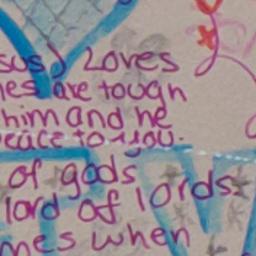 sus) Loves
es are tough
him and he
eace to you.
of gods
lord of lords.
mes when